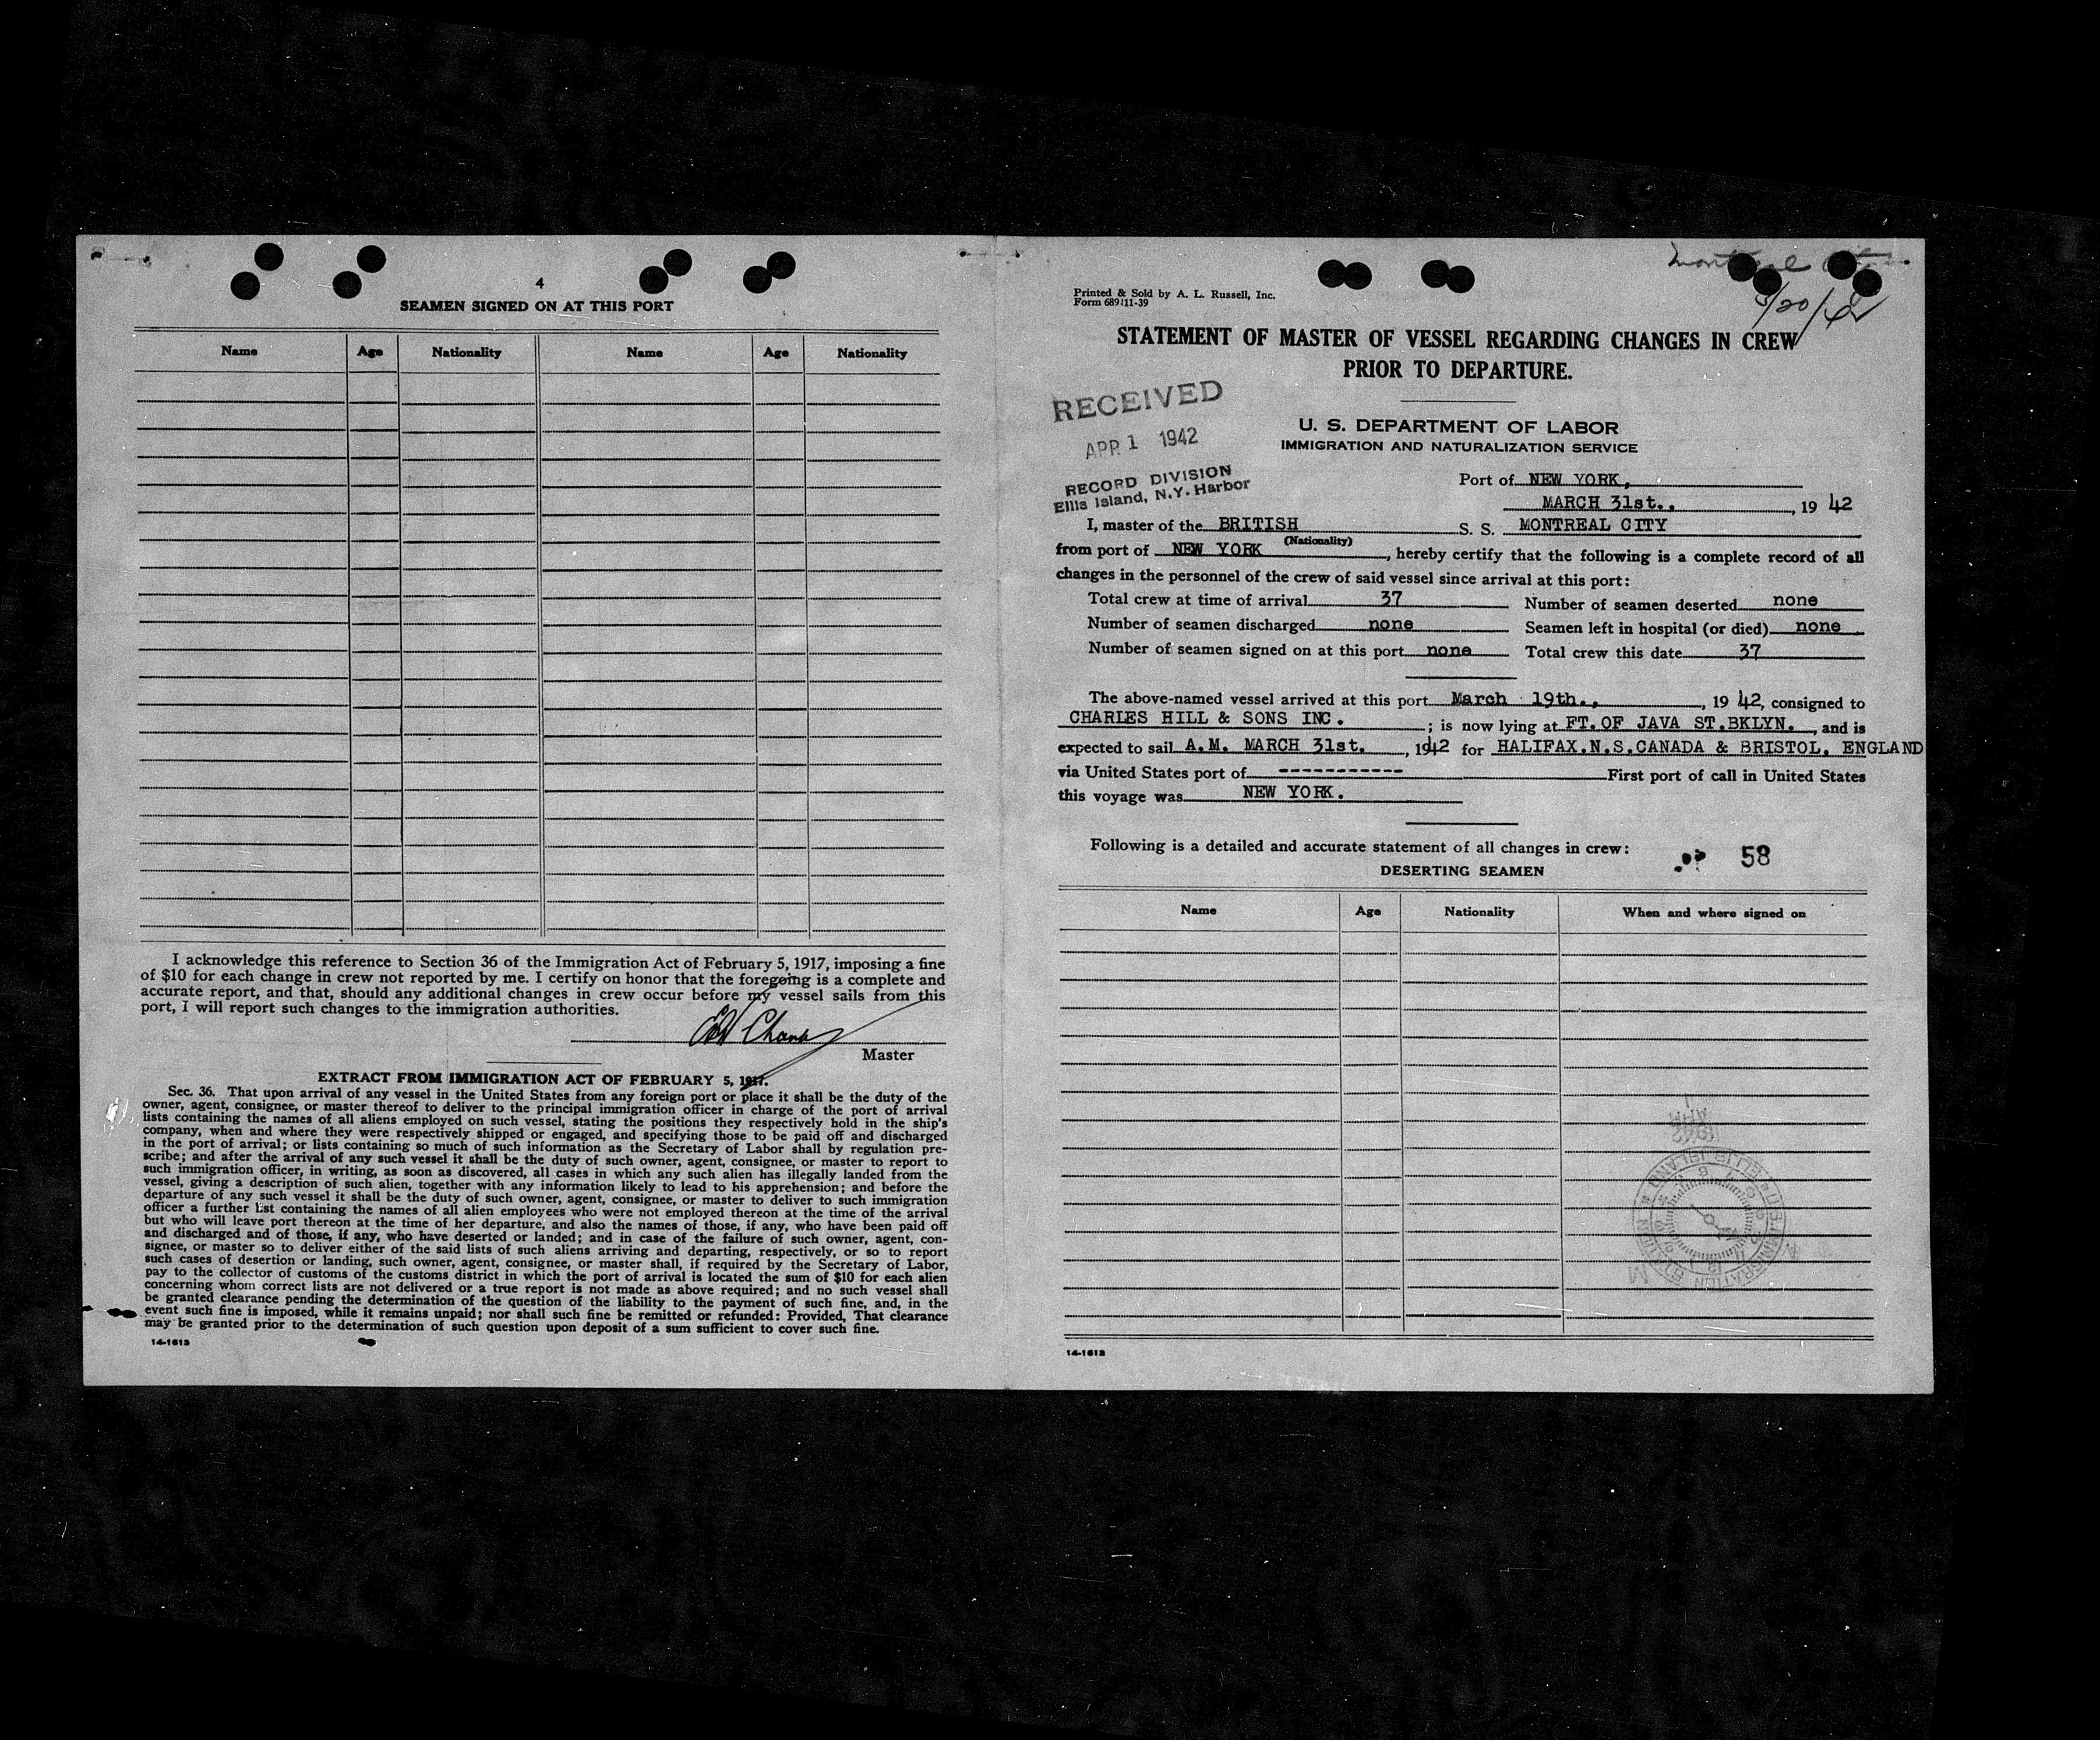 4
SEAMEN SIGNED ON AT THIS PORT
Name Age Nationality Name Age Nationality
I acknowledge this reference to Section 36 of the Immigration Act of February 5, 1917, imposing a fine
of $10 for each change in crew not reported by me. I certify on honor that the foregoing is a complete and
accurate report, and that, should any additional changes in crew occur before my vessel sails from this
port, I will report such changes to the immigration authorities.
Master
EXTRACT FROM IMMIGRATION ACT OF FEBRUARY 5, 1917.
Sec. 36. That upon arrival of any vessel in the United States from any foreign port or place it shall be the duty of the
owner, agent, consignee, or master thereof to deliver to the principal immigration officer in charge of the port of arrival
lists containing the names of all aliens employed on such vessel, stating the positions they respectively hold in the ship's
company, when and where they were respectively shipped or engaged, and specifying those to be paid off and discharged
in the port of arrival; or lists containing so much of such information as the Secretary of Labor shall by regulation pre-
scribe; and after the arrival of any such vessel it shall be the duty of such owner, agent, consignee, or master to report to
such immigration officer, in writing, as soon as discovered, all cases in which any such alien has illegally landed from the
vessel, giving a description of such alien, together with any information likely to lead to his apprehension; and before the
departure of any such vessel it shall be the duty of such owner, agent, consignee, or master to deliver to such immigration
officer a further list containing the names of all alien employees who were not employed thereon at the time of the arrival
but who will leave port thereon at the time of her departure, and also the names of those, if any, who have been paid off
and discharged and of those, if any, who have deserted or landed; and in case of the failure of such owner, agent, con-
signee, or master so to deliver either of the said lists of such aliens arriving and departing, respectively, or so to report
such cases of desertion or landing, such owner, agent, consignee, or master shall, if required by the Secretary of Labor,
pay to the collector of customs of the customs district in which the port of arrival is located the sum of $10 for each alien
concerning whom correct lists are not delivered or a true report is not made as above required; and no such vessel shall
be granted clearance pending the determination of the question of the liability to the payment of such fine, and, in the
event such fine is imposed, while it remains unpaid; nor shall such fine be remitted or refunded: Provided, That clearance
may be granted prior to the determination of such question upon deposit of a sum sufficient to cover such fine.
14-1613
Printed & Sold by A. L. Russell, Inc.
Form 689 11-39
STATEMENT OF MASTER OF VESSEL REGARDING CHANGES IN CREW
PRIOR TO DEPARTURE.
RECEIVED
APR 1 1942
RECORD DIVISION
Ellis Island, N.Y. Harbor
U. S. DEPARTMENT OF LABOR
IMMIGRATION AND NATURALIZATION SERVICE
Port of NEW YORK,
MARCH 31st., , 19 42
I, master of the BRITISH S. S. MONTREAL CITY
(Nationality)
from port of NEW YORK , hereby certify that the following is a complete record of all
changes in the personnel of the crew of said vessel since arrival at this port:
Total crew at time of arrival 37 Number of seamen deserted none
Number of seamen discharged none Seamen left in hospital (or died) none
Number of seamen signed on at this port none Total crew this date 37
The above-named vessel arrived at this port March 19th., , 19 42, consigned to
CHARLES HILL & SONS INC. ; is now lying at FT. OF JAVA ST.BKLYN. , and is
expected to sail A.M. MARCH 31st. , 1942 for HALIFAX.N.S.CANADA & BRISTOL. ENGLAND
via United States port of ----------- First port of call in United States
this voyage was NEW YORK.
Following is a detailed and accurate statement of all changes in crew:
58
DESERTING SEAMEN
Name Age Nationality When and where signed on
14-1613